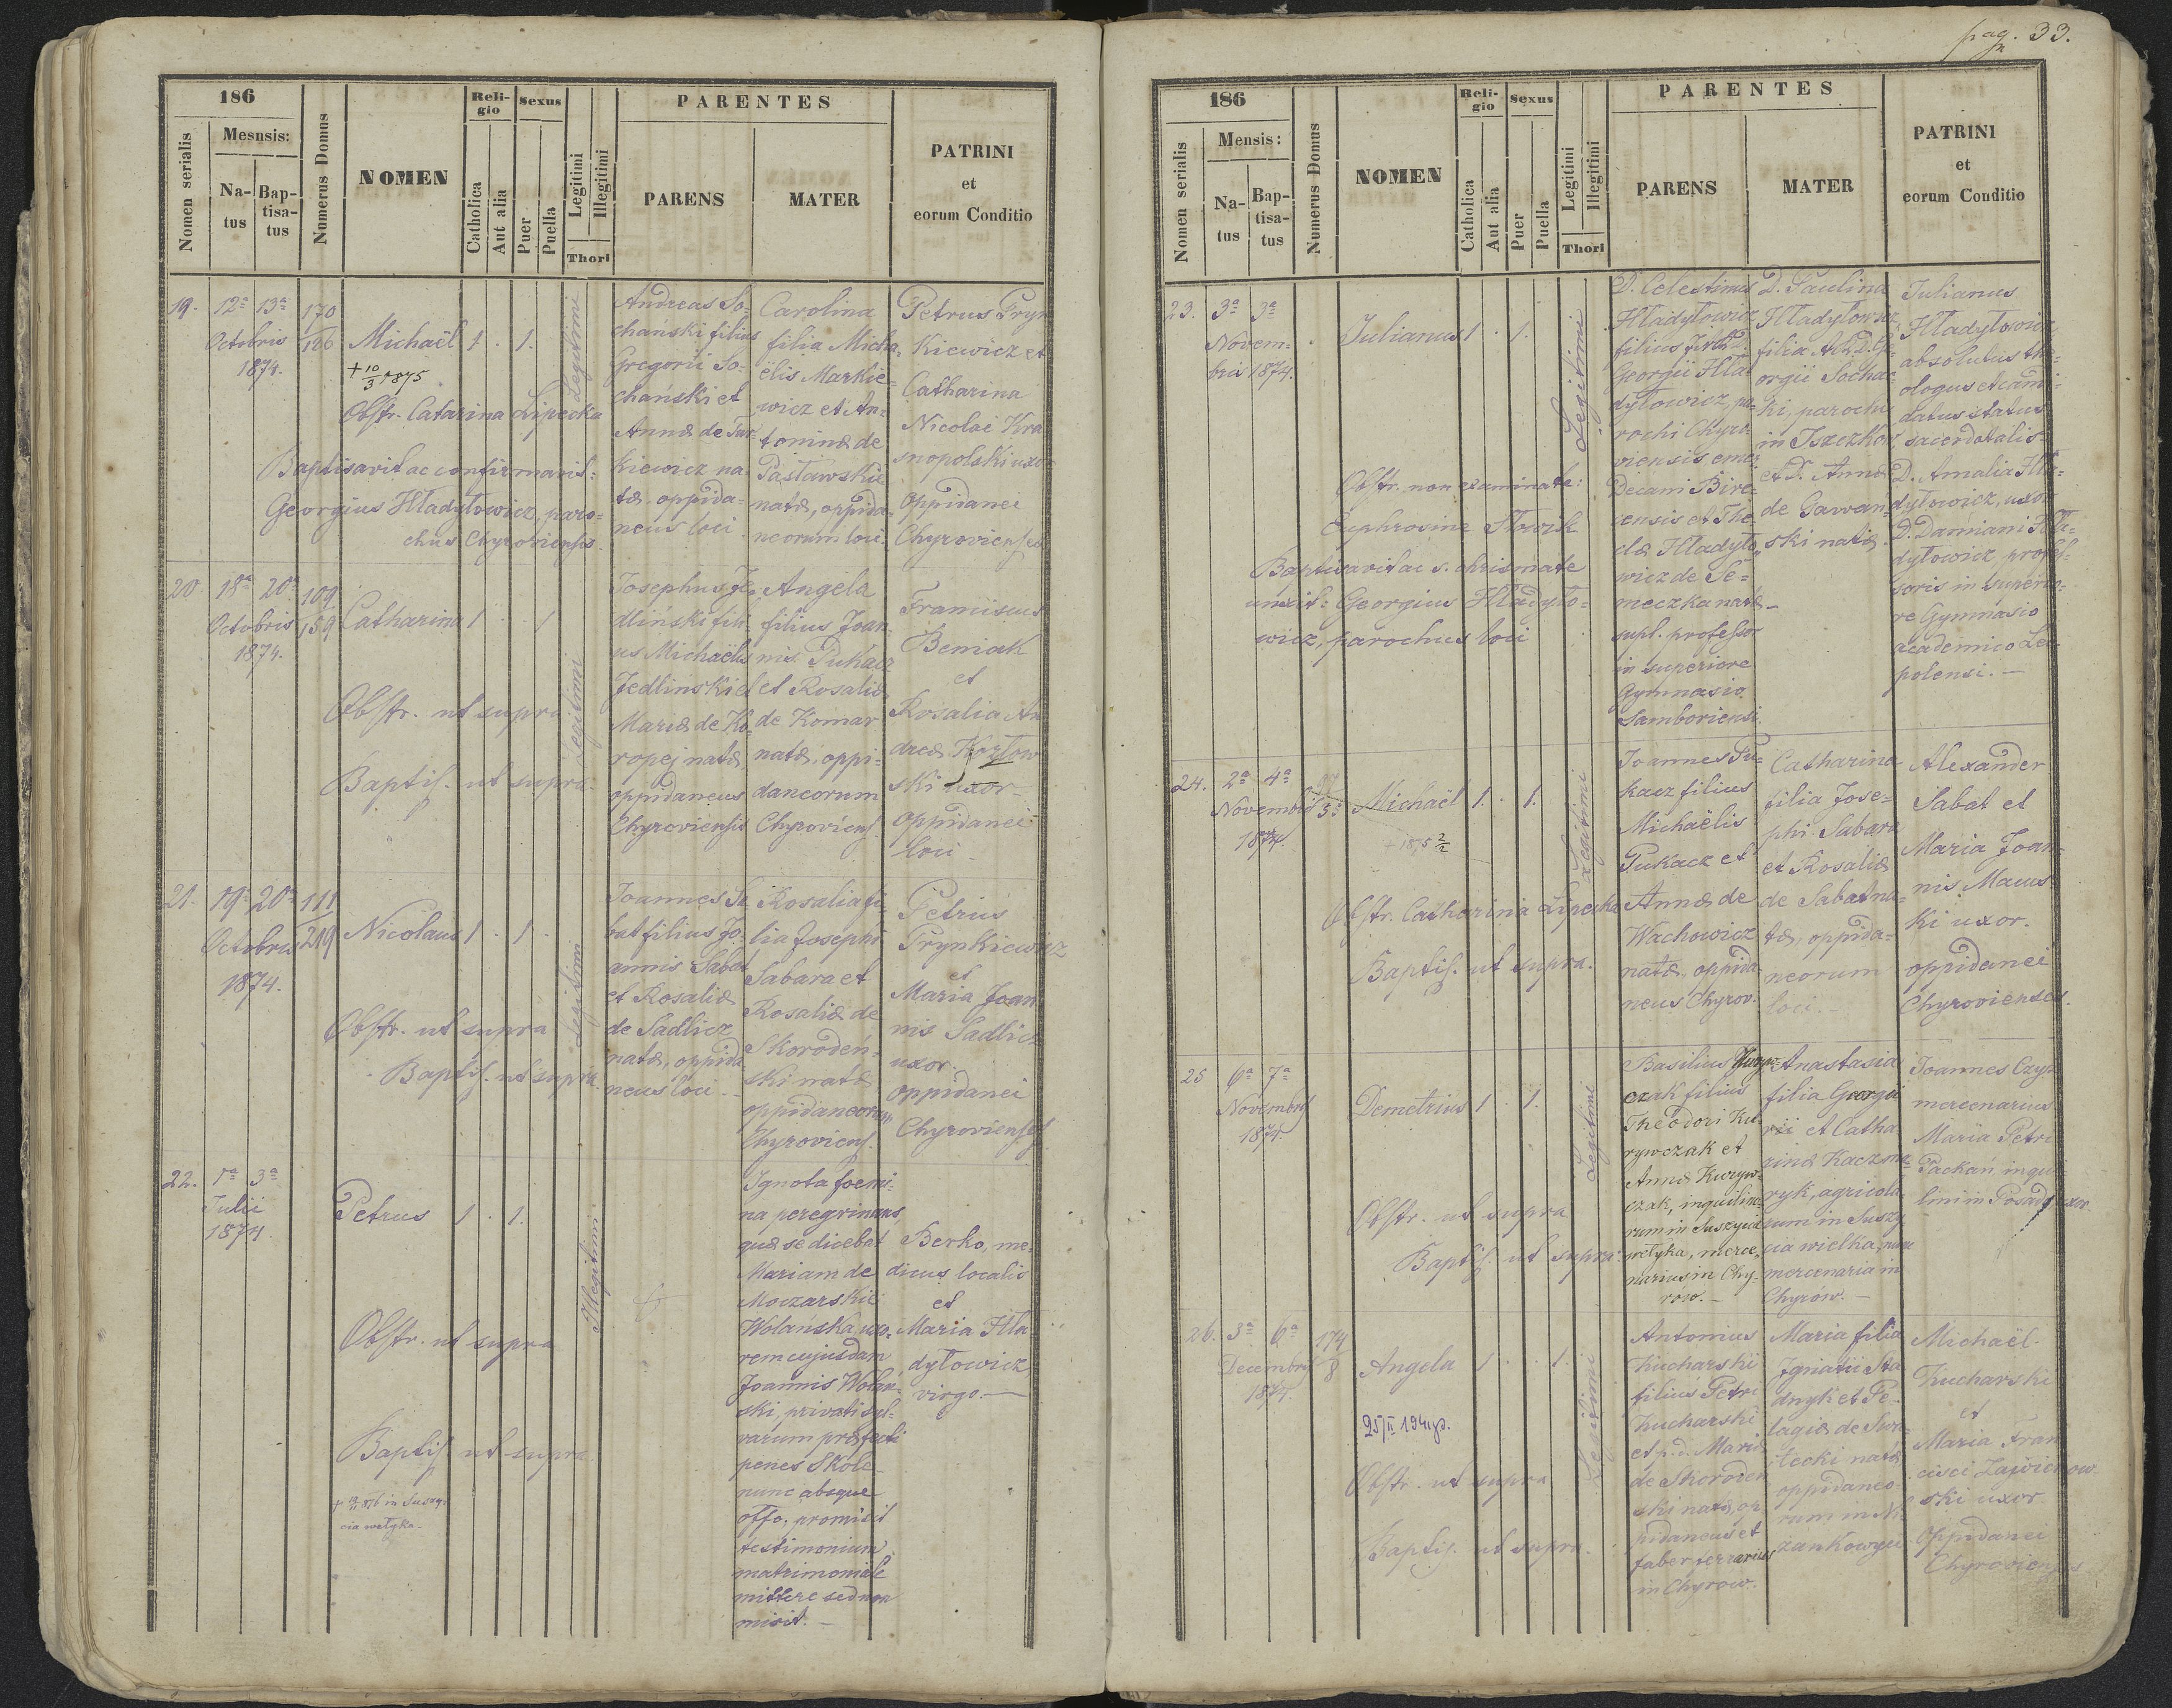 pag. 33.
186
Mesnsis:
Nomen serialis
Na-
tus
Bap-
tisa-
tus
Numerus Domus
NOMEN
Reli-
gio
Catholica
Aut alia
Sexus
Puer
Puella
Legitimi
Illegitimi
Thori
PARENTES
PARENS
MATER
PATRINI
et
eorum Conditio
19. 12ª 13ª 170
Octobris 126
1874.
Michaël 1 . 1.
+ 10/3 1875
Obstr. Catarina Lipecka
Baptisavit ac confirmavit:
Georgius Hładyłowicz, paro=
chus Chyroviensis.
Legitimi
Andreas So=
chański filius
Gregorii So=
chański et
Annæ de
kiewicz na=
tæ, oppida=
neus loci
Carolina
filia Micha=
ëlis Markie=
wicz et An=
toninæ de
Pasławskie
natæ, oppida=
neorum loci.
Petrus Pryn
Kiewicz et
Catharina
Nicolai Kra
snopolski uxor
oppidanei
Chyrovienses
20. 18ª 20ª 109
Octobris 159
1874.
Catharina 1 . . 1
Obstr. ut supra
Baptis. ut supra.
Legitimi
Josephus Je=
dliński fili=
us Michaëlis
Jedlinski et
Mariæ de Ko=
ropej natæ
oppidaneus
Chyroviensis
Angela
filius Joan=
nis Pukacz
et Rosaliæ
de Komar
natæ, oppi=
daneorum
Chyroviens.
Franciscus
Beniak
et
Rosalia An
dreæ Kozłow
ski uxor
oppidanei
loci
21. 19ª 20ª 111
Octobris 219
1874.
Nicolaus 1 . 1 .
Obstr. ut supra
Baptis. ut supra.
Legitimi
Joannes Sa
bat filius Jo=
annis Sabat
et Rosaliæ
de Sadlicz
natæ, oppida
neus loci.
Rosalia fi=
lia Josephi
Sabara et
Rosaliæ de
Skorodeń=
ski natæ
oppidaneorum
Chyroviens.
Petrus
Prynkiewicz
et
Maria Joan
nis Sadlicz
uxor
oppidanei
Chyrovienses
22. 1ª 3ª
Julii
1874.
Petrus 1 . 1.
Obstr. ut supra
Baptis. ut supra
876 in Suszy=
cia wełyka.
Illegitimi
Ignota foemi=
na peregrinans,
quæ se dicebat
Mariam de
Moczarskie
Wolańska, uxo=
rem cujusdam
Joannis Wolań=
ski, privati syl=
varum præfecti
penes Skole
nunc absque
offo. promisit
testimonium
matrimoniale
mittere sed non
misit. —
Berko, me=
dicus localis
et
Maria Hła
dyłowicz,
virgo. —
186
Mensis:
Nomen serialis
Na-
tus
Bap-
tisa-
tus
Numerus Domus
NOMEN
Reli-
gio
Catholica
Aut alia
Sexus
Puer
Puella
Legitimi
Illegitimi
Thori
PARENTES
PARENS
MATER
PATRINI
et
eorum Conditio
23. 3ª 3ª
Novem=
bris 1874.
Julianus 1 . 1.
Obstr. non examinata:
Euphrosina Słowik
Baptisavit ac s. chrismate
unxit: Georgius Hładyło=
wicz, parochus loci
Legitimi
D. Celestinus
Hładyłowicz
filius
Georgii Hła=
dyłowicz, pa=
rochi Chyro=
viensis eme.
Decani Bir=
censis et The=
clæ Hładyło=
wicz de Se=
meczka natæ —
supl. professor
in superiore
Gymnasio
Samboriensi.
D. Paulina
Hładyłowicz,
filia
orgii Socha=
ki, parochi
in
et D. Annæ
de Gawan=
ski natæ
Julianus
Hładyłowicz
absolutus the=
ologus et candi=
datus status
sacerdotalis
D. Amalia Hła=
dyłowicz, uxor
D. Damiani Hła=
dyłowicz profes=
soris in superio=
re Gymnasio
academico Leo=
polensi. —
24. 2ª 4ª
Novembris
1874.
Michaël 1. . 1.
+ 1875 2/2
Obstr. Catharina Lipecka
Baptis. ut supra.
Legitimi
Joannes Pu=
kacz filius
Michaëlis
Pukacz et
Annæ de
Wachowicz
natæ, oppida
neus Chyrov.
Catharina
filia Jose=
phi Sabara
et Rosaliæ
de Sabat na=
tæ, oppida=
neorum
loci. —
Alexander
Sabat et
Maria Joan=
nis Macus
ki uxor.
oppidanei
Chyrovienses.
25 6ª 7ª
Novembris
1874.
Demetrius 1 . 1.
Obstr. ut supra
Baptis. ut supra.
Legitimi
Basilius
czak filius
Theodori Ku=
rywczak et
Annæ Kuryw=
czak, inquilino=
rum in Suszycia
wełyka, merce=
narius in Chy=
row. —
Anastasia
filia
et Catha
rinæ Kaczma=
ryk, agricola=
rum in Suszy=
cia wielka, nunc
mercenaria in
Chyrow. —
Joannes Czyż
mercenarius
Maria Petri
Packań inqui=
lini in Posada uxor
26. 3ª 6ª 174
Decembris 8
1874.
Angela 1 . . 1.
25/II 194
Obstr. ut supra
Baptis. ut supra.
Legitimi
Antonius
Kucharski
filius Petri
Kucharski
et p.d. Mariæ
de Skoroden
ski natæ, op=
pidaneus et
faber ferrarius
in Chyrow.
Maria filia
Ignatii Sta=
dnyk et Pe=
lagiæ de
natæ
oppidaneo
rum in Ni=
żankowyci
Michaël
Kucharski
et
Maria Fran
cisci
ski uxor
oppidanei
Chyrovienses